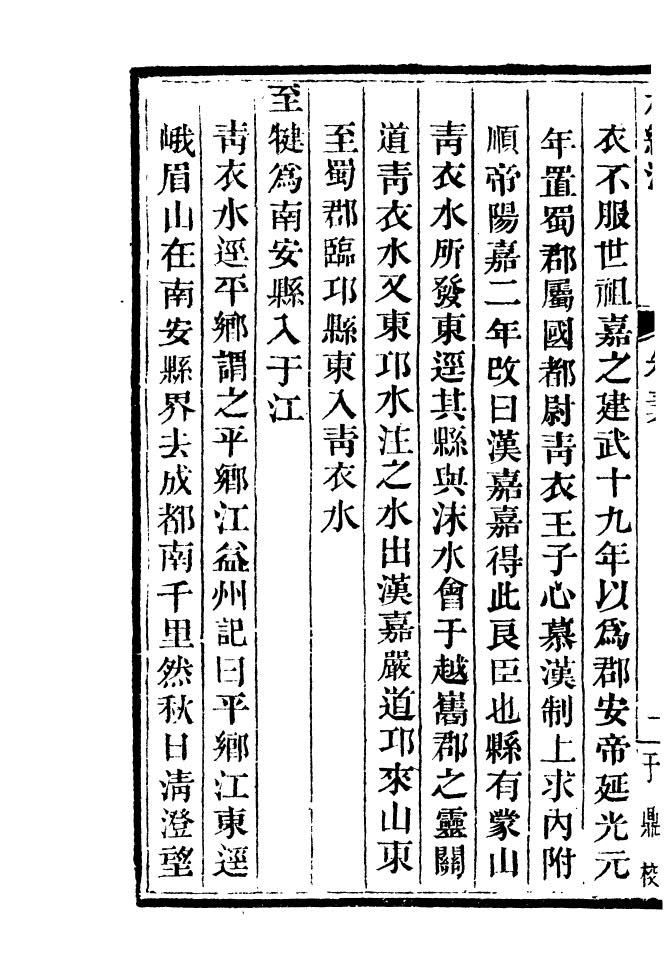 衣不服世祖嘉之建武十九年以爲郡安帝延光元
年置蜀郡屬國都尉靑衣王子心慕漢制上求內附
順帝陽嘉二年改曰漢嘉嘉得此良臣也縣有蒙山
靑衣水所發東逕其縣與沫水會于越嶲郡之靈關
道靑衣水又東邛水注之水出漢嘉嚴道邛來山東
至蜀郡臨邛縣東入靑衣水
至犍爲南安縣入于江
靑衣水逕平鄕謂之平鄕江益州記曰平鄕江東逕
峨眉山在南安縣界去成都南千里然秋日淸澄望
于鼎校